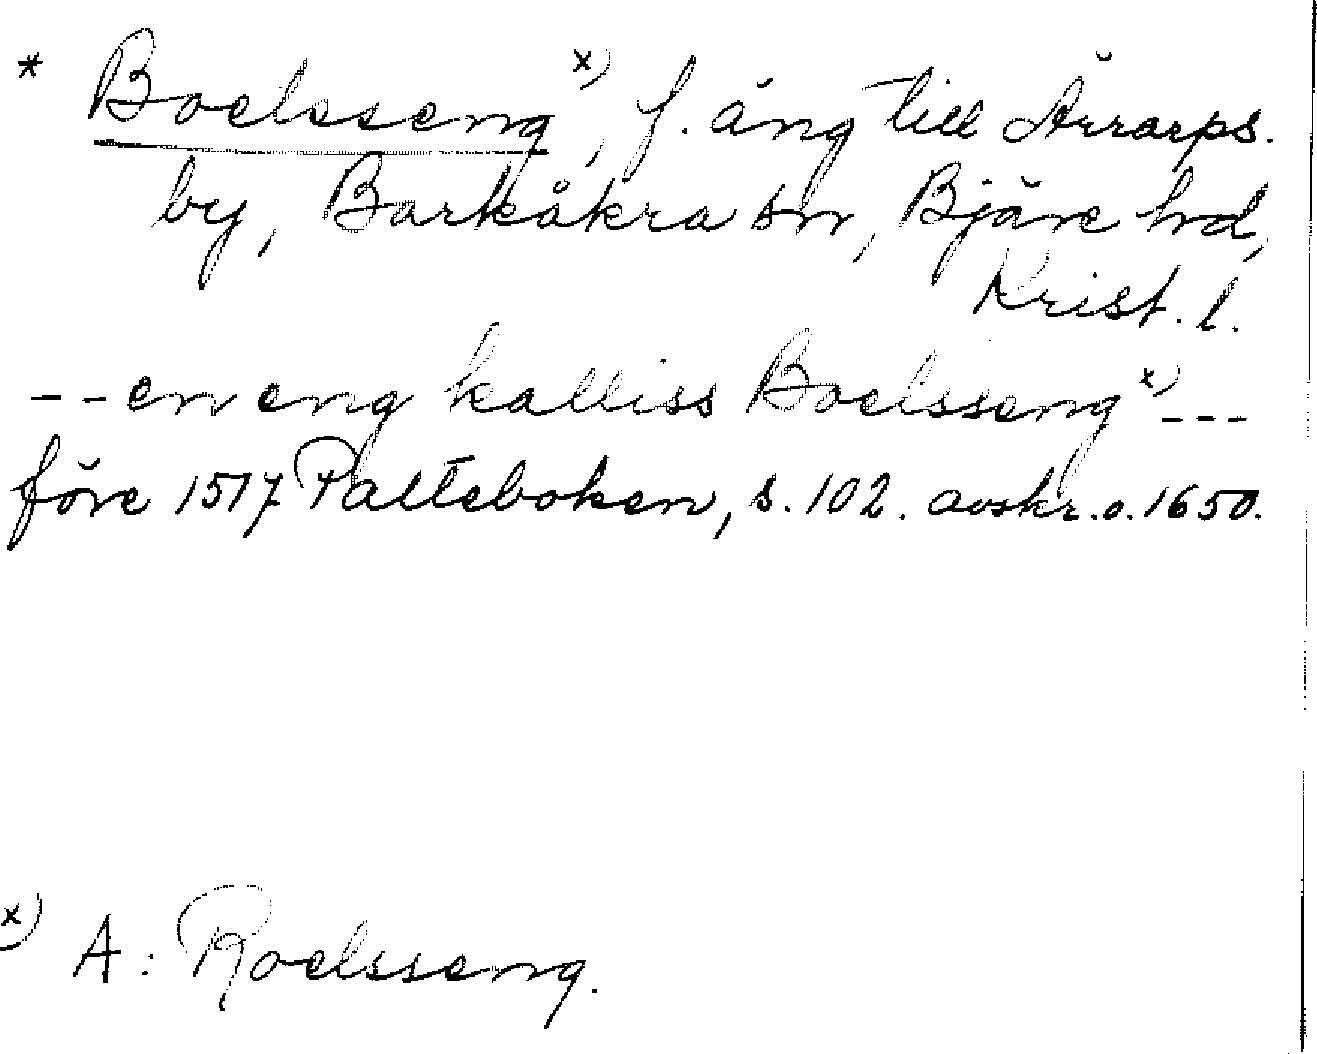 * Boelsseng x), f. äng till Ärrarps.
by, Barkåkra sn, Bjäre hd,
Krist. l.
-- en eng kalliss Boelsseng x) ---
före 1517 Palteboken, s. 102. avskr. o. 1650.
x) A: Roelsseng.